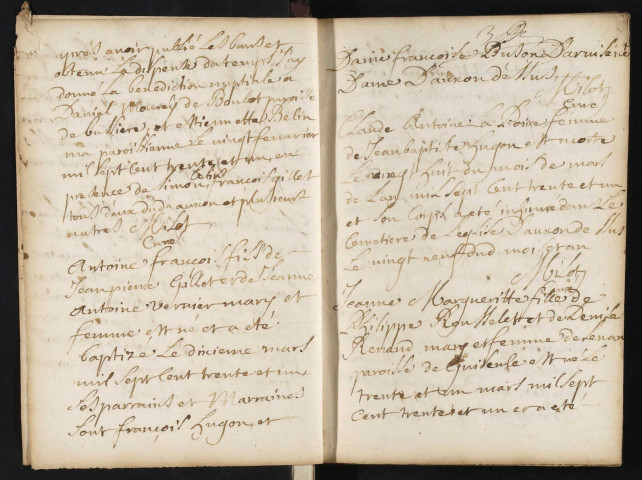 apres avoir publié Les bans et
obtenu La dispense du temps J'ay
donné La benediction nuptiale a
Daniel Mourey de Boulot paroisse
de bussiere, et estiennette Belin
ma paroissienne Le vingt fevrier
mil sept cent trente et un, en
presence de simon, et françois gillet
tous deux du dit aunon et plusieurs
autres Milot
Curé
Antoine françois fils de
Jean pierre Gillet et de Jeanne
Antoine vernier mary et
femme est né et a été
baptizé Le dixieme mars
mil sept cent trente et un
Ses parrains et Marraines
Sont françois hugon, et
3
Dame françoise Buson
Dame D'aunon dessus
Milot
Curé
Claude Antoine La Poire femme
de Jean baptite hugon est morte
Le vingt huit du mois de mars
de L'an mil sept cent trente et un
et son Corps a eté inhumé dans Le
Cemetiere de Leglise D'aunon dessus
Le vingt neuf dud. mois et an
Milot
Curé
Jeanne Margueritte fille de
Philippe Rousselet et de Denise
Renand mary et femme de
paroisse de est née
trente et un mars mil sept
Cent trente et un et a eté